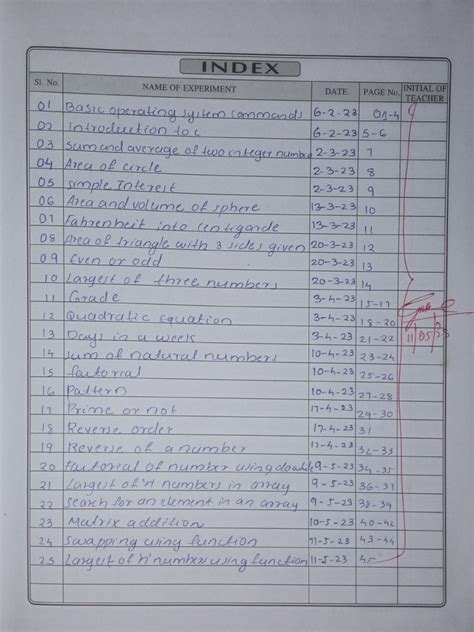 INDEX
Sl. No. NAME OF EXPERIMENT DATE PAGE No. INITIAL OF TEACHER
01 Basic operating system commands 6-2-23 01-4
02 Introduction to c 6-2-23 5-6
03 Sum and average of two integer number 2-3-23 7
04 Area of circle 2-3-23 8
05 Simple Interest 2-3-23 9
06 Area and volume of sphere 13-3-23 10
07 Fahrenheit into centigarde 13-3-23 11
08 Area of triangle with 3 sides given 20-3-23 12
09 Even or odd 20-3-23 13
10 Largest of three numbers 20-3-23 14
11 Grade 3-4-23 15-17
12 Quadratic Equation 3-4-23 18-20
13 Days in a week 3-4-23 21-22
14 sum of natural numbers 10-4-23 23-24
15 factorial 10-4-23 25-26
16 Pattern 10-4-23 27-28
17 Prime or not 17-4-23 29-30
18 Reverse order 17-4-23 31
19 Reverse of a number 17-4-23 32-33
20 Factorial of number using dowhile 9-5-23 34-35
21 Largest of 'n' numbers in array 9-5-23 36-37
22 Search for an element in an array 9-5-23 38-39
23 Matrix addition 10-5-23 40-42
24 Swapping using function 11-5-23 43-44
25 Largest of 'n' number using function 11-5-23 45
11/05/23